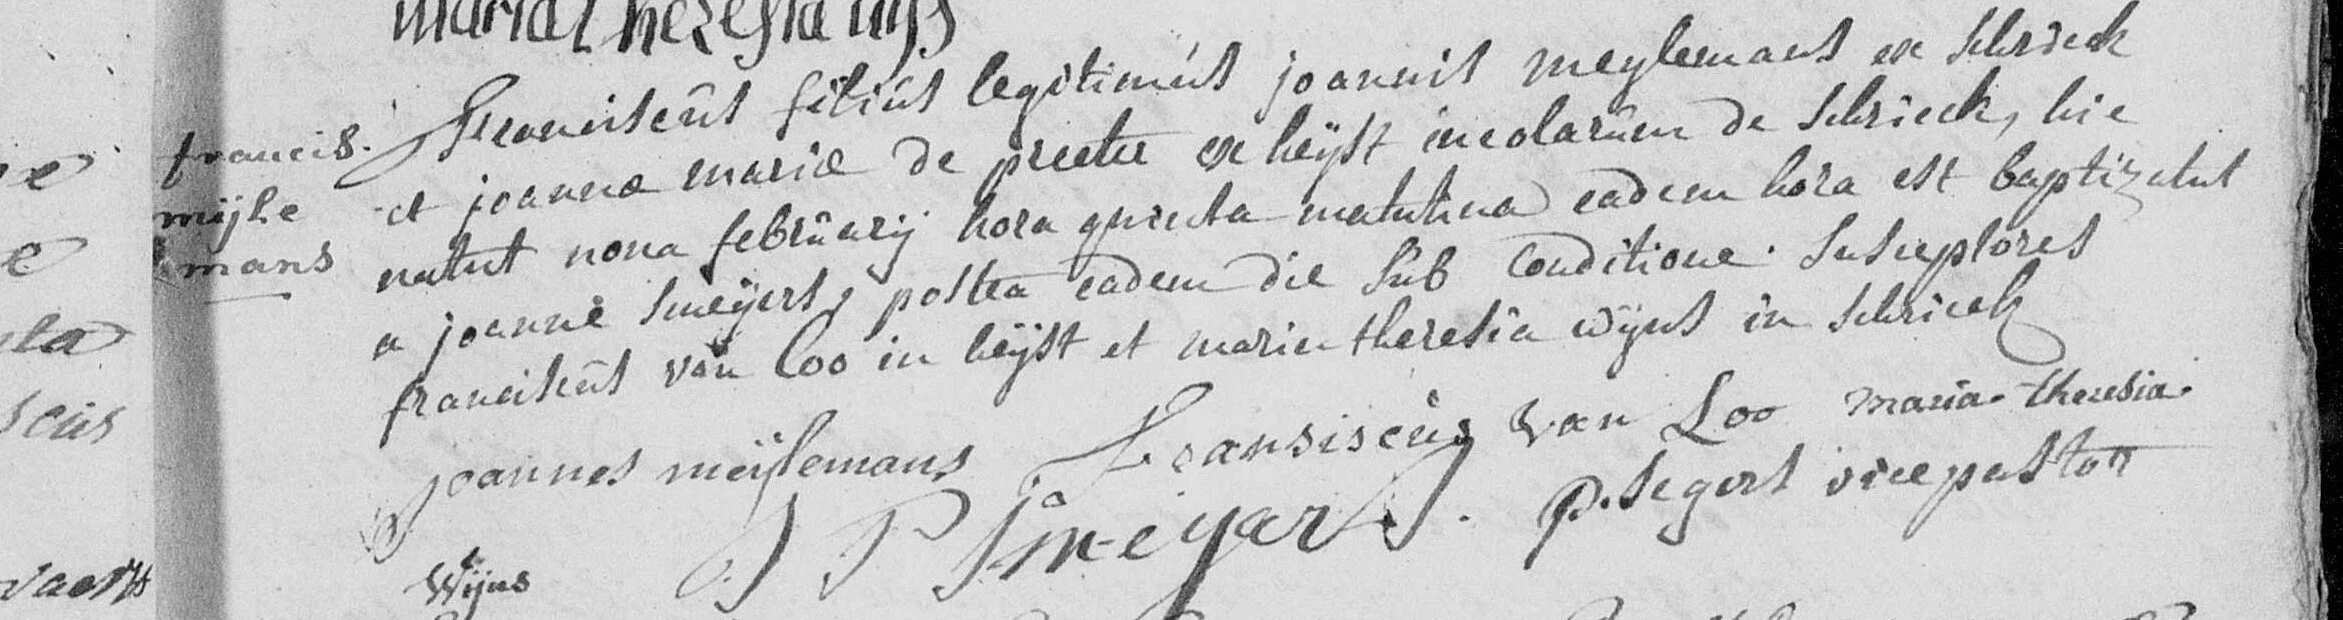 maria theresia wijs
francis.
mijle
mans
Franciscûs filiûs legitimús joannis meylemans ex schrieck
et joannæ mariæ de preeter ex heÿst incolarûm de schrieck, hic
natus nona febrûarij hora quinta matutina eadem hora est baptizatus
a joanne smeÿers, postea eadem die sûb conditione. susceptores
franciscûs van loo in heÿst et maria theresia wÿns in schrieck
joannes meijlemans Fransiscûs van Loo maria-theresia
J P Smeÿars. P. Segers vice pastor
Wijns